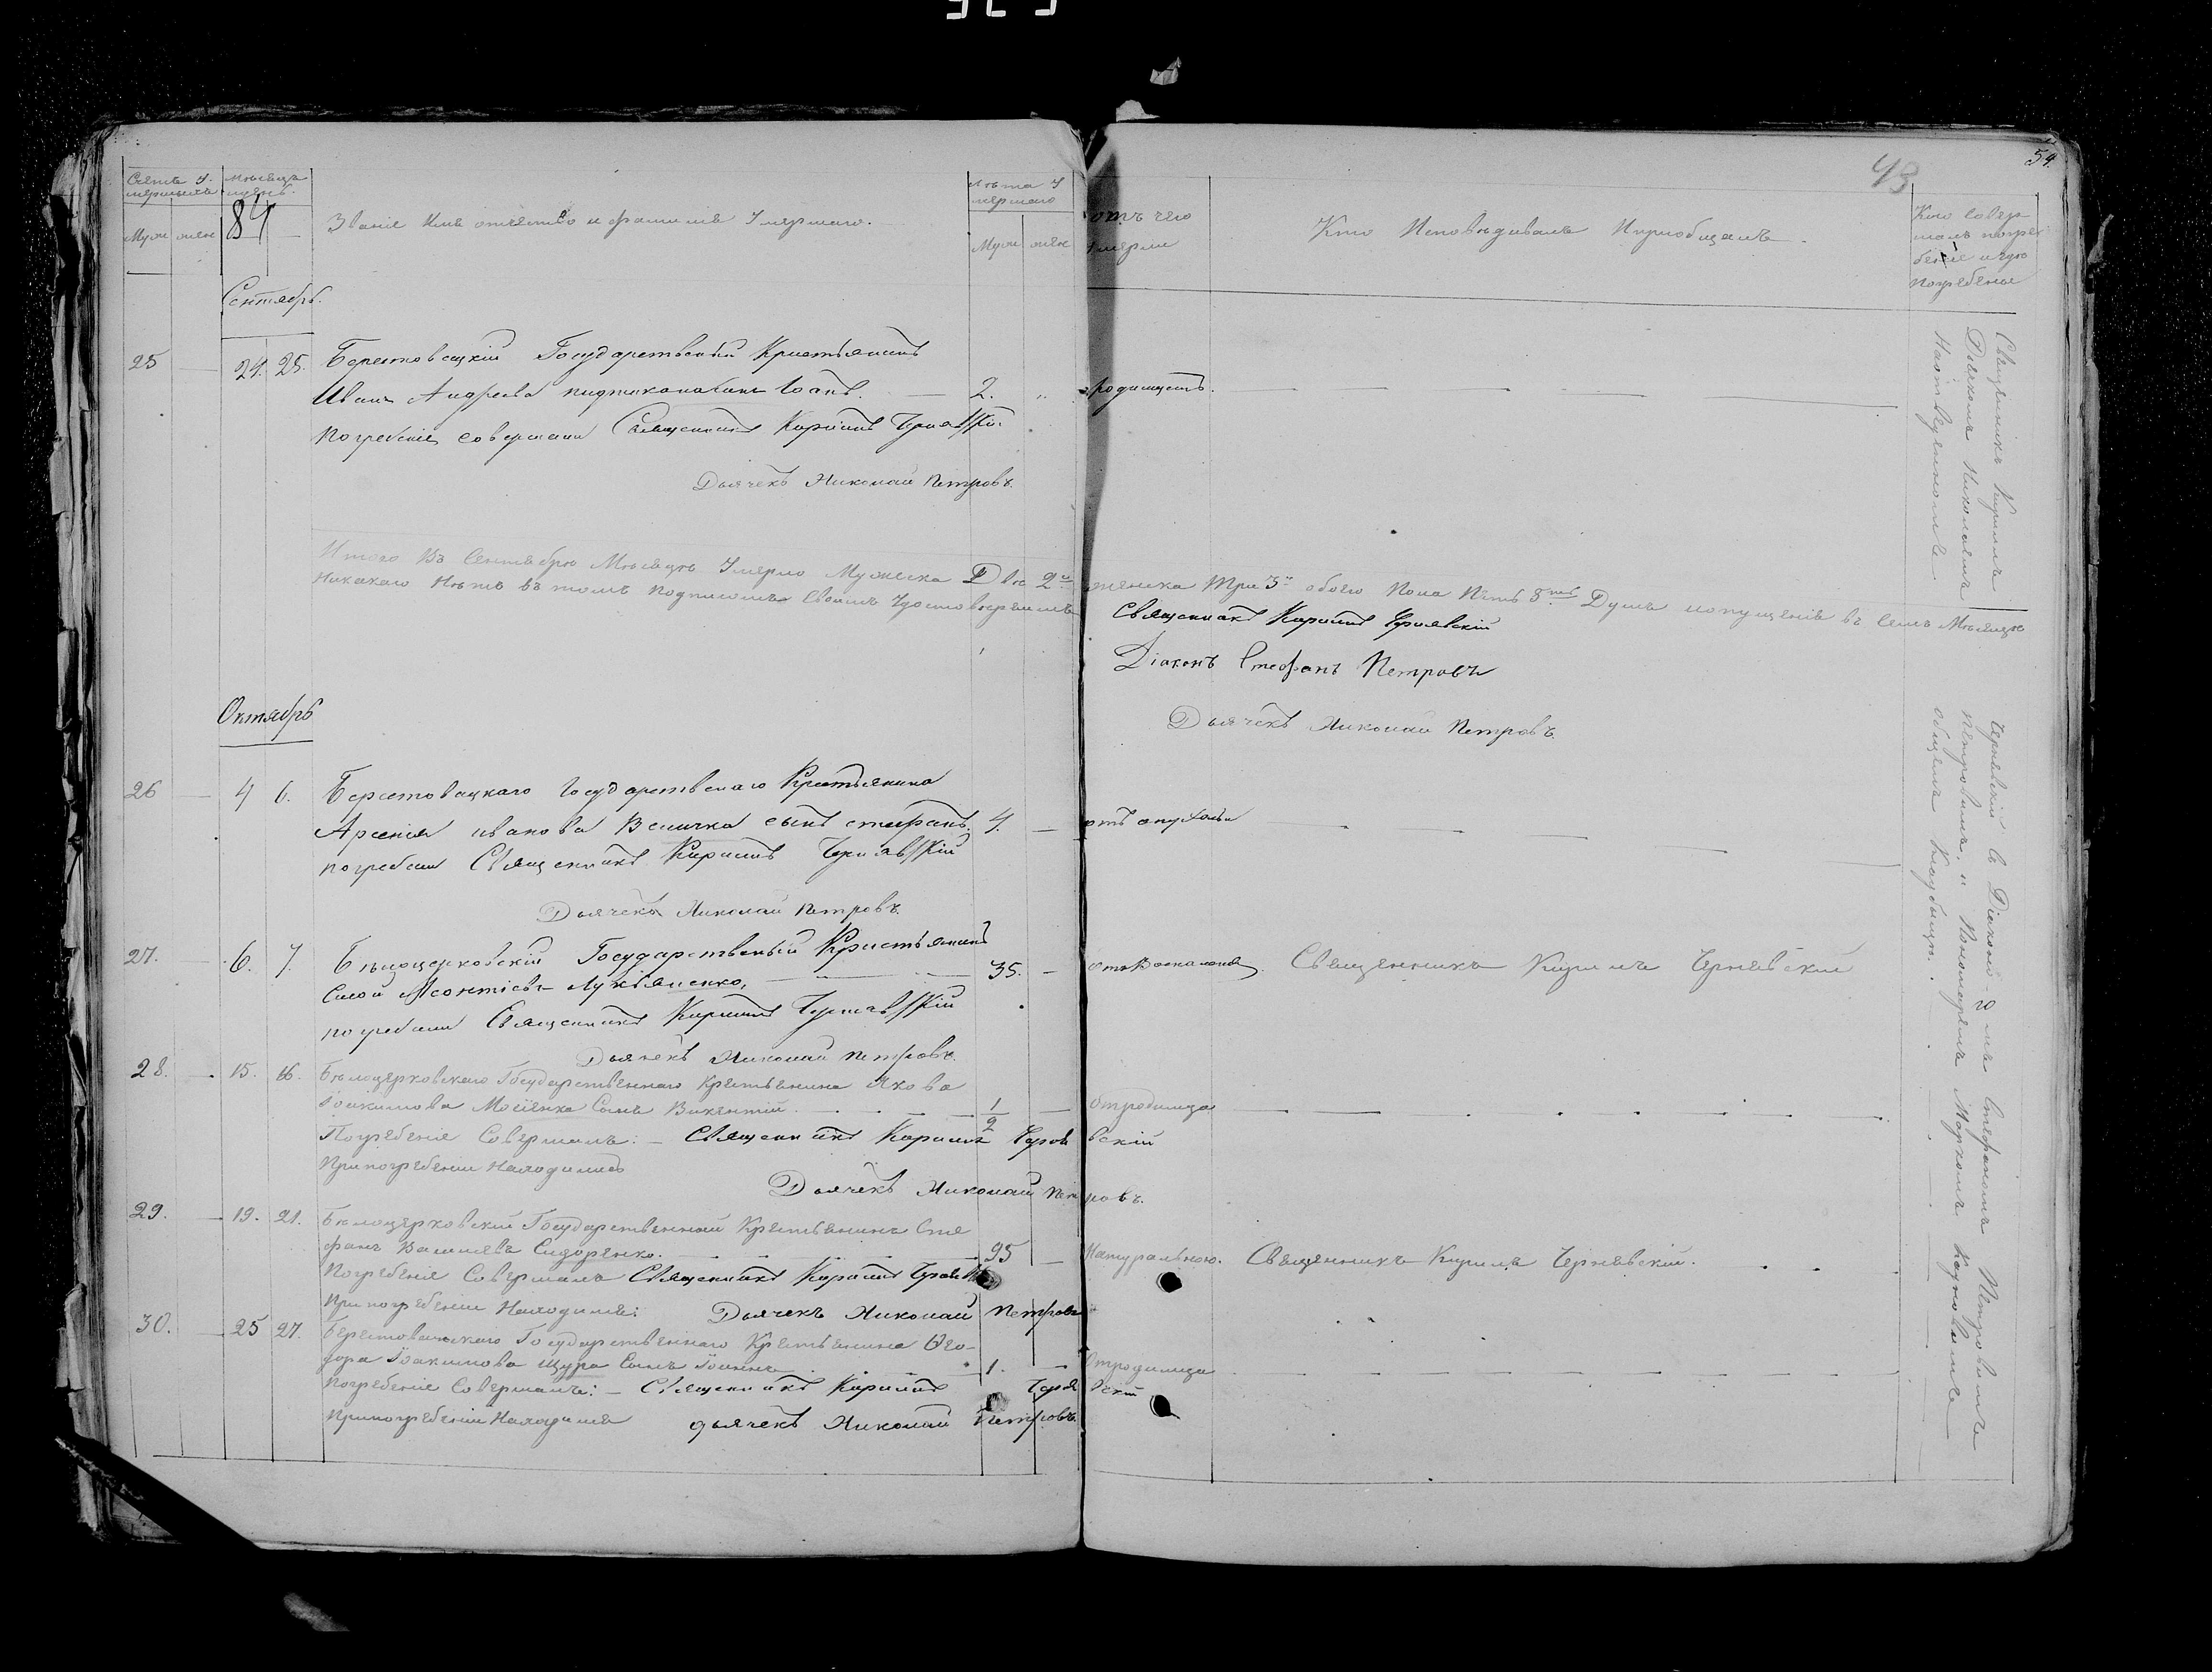 43
54.
Счетъ у-
мершихъ
Мѣсяцъ
и день.
84
Муж жен
Званіе Имя отчество и фамилія Умершаго.
Лѣта У
мершаго
Муж жен
отъ чего
Умерли
Кто Исповѣдивалъ И пріобщалъ.
Кто совер-
шалъ погре
беніе и гдѣ
Погребены
Сентябрь.
25 24. 25. Берестовецкій Государственый Крестьянинъ
Иванъ Андреевъ
2. родимцемъ.
погребеніе совершали Священникъ Кирилъ
Дьячекъ Николай Петровъ.
Итого Въ Сентябрѣ Мѣсяцѣ Умерло Мужеска Два 2 женска Три 3 обоего Пола Пять 5 Душъ а опущенія въ семъ Мѣсяцѣ
Никакаго Нѣтъ въ томъ подписомъ Своимъ Удостовѣряемъ
Священникъ Кирилъ Чернявскій
Діаконъ Стефанъ Петровъ
Дьячекъ Николай Петровъ.
Октябрь
26 4 6. Берестовецкаго Государственаго Крестьянина
Арсенія иванова Величка сынъ стефанъ. 4. отъ опухоли
погребали Священникъ Кирилъ Чернявскій
Дьячекъ Николай Петровъ.
27. 6. 7. Бѣлоцерковскій Государственый Крестьянинъ
Леонтіевъ Лукьяненко, 35. отъ Воспаленія. Священникъ Кирилъ Чернявскій
погребали Священникъ Кирилъ Чернявскій
Дьячекъ Николай Петровъ.
28. 15. 16. Бѣлоцерковскаго Государственнаго Крестьянина Якова
Іоакимова Сынъ Викентій. 1/2 От родимца
Погребеніе Совершалъ: – Священникъ Кирилъ Чернявскій
При погребеніи Находились
Дьячекъ Николай Петровъ.
29. 19. 21. Бѣлоцерковскій Государственный Крестьянинъ Сте
фанъ Василіевъ Сидоренко. 95 Натуральною. Священникъ Кирилъ Чернявскій.
Погребеніе Совершалъ Священникъ Кирилъ
При погребеніи Находился: Дьячекъ Николай Петровъ
30. 25 27. Берестовецкаго Государственнаго Крестьянина Ѳео-
дора Іоакимова Щура Сынъ Іоаннъ 1. От родимца
Погребеніе Совершалъ: – Священникъ Кирилъ
При погребеніи Находился дьячекъ Николай Петровъ.
Священникъ Кирилъ Чернявскій съ Діакономъ Стефаномъ Петровымъ
Дьячкомъ Николаемъ Петровымъ и Пономаремъ Маркомъ
На общемъ Кладбищѣ.